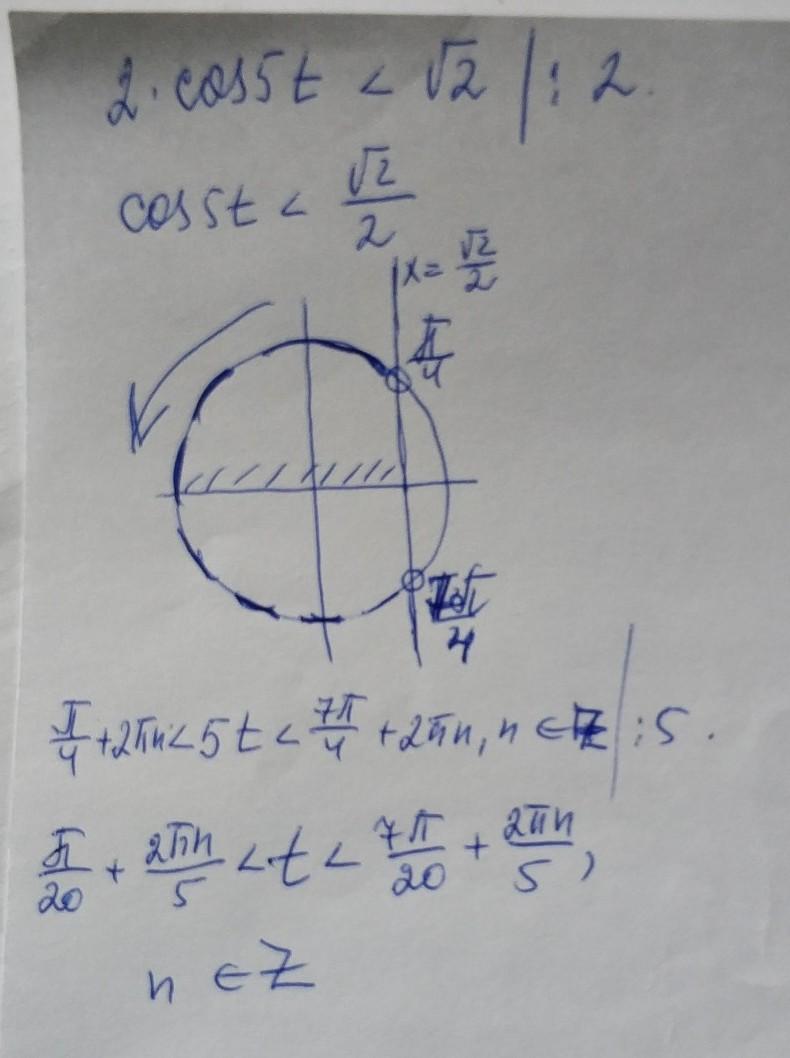 2 · cos5t < √2 | : 2.
cos5t < √2/2
x = √2/2
π/4
7π/4
π/4 + 2πn < 5t < 7π/4 + 2πn, n ∈ Z | : 5.
π/20 + 2πn/5 < t < 7π/20 + 2πn/5,
n ∈ Z